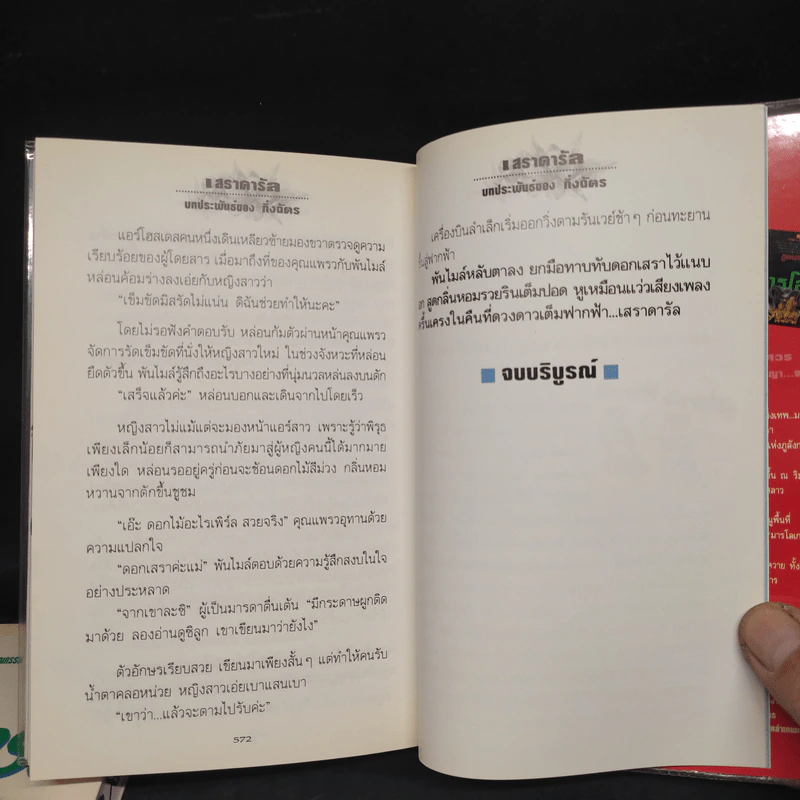 เสราดารัล
บทประพันธ์ของ กิ่งฉัตร
แอร์โฮสเตสคนหนึ่งเดินเหลียวซ้ายมองขวาตรวจดูความ
เรียบร้อยของผู้โดยสาร เมื่อมาถึงที่ของคุณแพรวกับพันไมล์
หล่อนค้อมร่างลงเอ่ยกับหญิงสาวว่า
“เข็มขัดมิสรัดไม่แน่น ดิฉันช่วยทำให้นะคะ”
โดยไม่รอฟังคำตอบรับ หล่อนก้มตัวผ่านหน้าคุณแพรว
จัดการรัดเข็มขัดที่นั่งให้หญิงสาวใหม่ ในช่วงจังหวะที่หล่อน
ยืดตัวขึ้น พันไมล์รู้สึกถึงอะไรบางอย่างที่นุ่มนวลหล่นลงบนตัก
“เสร็จแล้วค่ะ” หล่อนบอกและเดินจากไปโดยเร็ว
หญิงสาวไม่แม้แต่จะมองหน้าแอร์สาว เพราะรู้ว่าพิรุธ
เพียงเล็กน้อยก็สามารถนำภัยมาสู่ผู้หญิงคนนี้ได้มากมาย
เพียงใด หล่อนรออยู่ครู่ก่อนจะช้อนดอกไม้สีม่วง กลิ่นหอม
หวานจากตักขึ้นชูชม
“เอ๊ะ ดอกไม้อะไรเพิร์ล สวยจริง” คุณแพรวอุทานด้วย
ความแปลกใจ
“ดอกเสราค่ะแม่” พันไมล์ตอบด้วยความรู้สึกสงบในใจ
อย่างประหลาด
“จากเขาละซิ” ผู้เป็นมารดาตื่นเต้น “มีกระดาษผูกติด
มาด้วย ลองอ่านดูซิลูก เขาเขียนมาว่ายังไง”
ตัวอักษรเรียบสวย เขียนมาเพียงสั้นๆ แต่ทำให้คนรับ
น้ำตาคลอหน่วย หญิงสาวเอ่ยเบาแสนเบา
“เขาว่า...แล้วจะตามไปรับค่ะ”
572
เสราดารัล
บทประพันธ์ของ กิ่งฉัตร
เครื่องบินลำเล็กเริ่มออกวิ่งตามรันเวย์ช้าๆ ก่อนทะยาน
ขึ้นสู่ฟากฟ้า
พันไมล์หลับตาลง ยกมือทาบทับดอกเสราไว้แนบ
อก สูดกลิ่นหอมรวยรินเต็มปอด หูเหมือนแว่วเสียงเพลง
ครื้นเครงในคืนที่ดวงดาวเต็มฟากฟ้า...เสราดารัล
จบบริบูรณ์